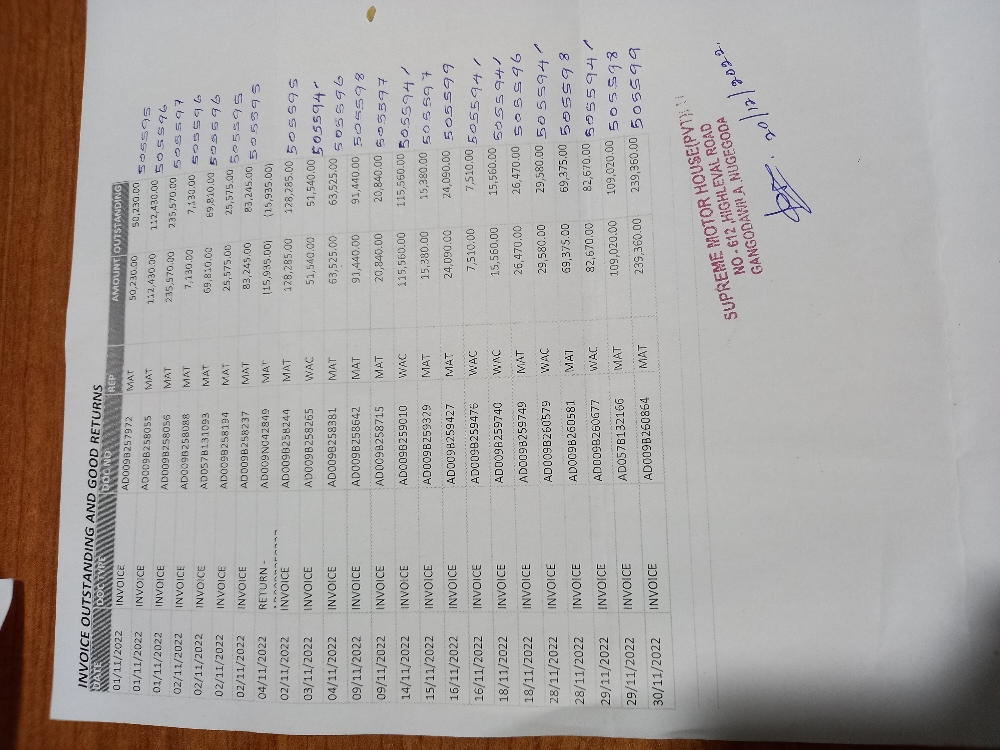 INVOICE OUTSTANDING AND GOOD RETURNS
DATE DOC NO REP AMOUNT OUTSTANDING
01/11/2022 INVOICE AD009B257972 MAT 50,230.00 50,230.00 505595
01/11/2022 INVOICE AD009B258055 MAT 112,430.00 112,430.00 505596
01/11/2022 INVOICE AD009B258056 MAT 235,570.00 235,570.00 505597
02/11/2022 INVOICE AD009B258088 MAT 7,130.00 7,130.00 505596
02/11/2022 INVOICE AD057B131093 MAT 69,810.00 69,810.00 505596
02/11/2022 INVOICE AD009B258194 MAT 25,575.00 25,575.00 505595
02/11/2022 INVOICE AD009B258237 MAT 83,245.00 83,245.00 505595
04/11/2022 RETURN - AD009N042849 MAT (15,935.00) (15,935.00)
02/11/2022 INVOICE AD009B258244 MAT 128,285.00 128,285.00 505595
03/11/2022 INVOICE AD009B258265 WAC 51,540.00 51,540.00 505594
04/11/2022 INVOICE AD009B258381 MAT 63,525.00 63,525.00 505596
09/11/2022 INVOICE AD009B258642 MAT 91,440.00 91,440.00 505598
09/11/2022 INVOICE AD009B258715 MAT 20,840.00 20,840.00 505597
14/11/2022 INVOICE AD009B259010 WAC 115,560.00 115,560.00 505594
15/11/2022 INVOICE AD009B259329 MAT 15,380.00 15,380.00 505597
16/11/2022 INVOICE AD009B259427 MAT 24,090.00 24,090.00 505599
16/11/2022 INVOICE AD009B259476 WAC 7,510.00 7,510.00 505594
18/11/2022 INVOICE AD009B259740 WAC 15,560.00 15,560.00 505594
18/11/2022 INVOICE AD009B259749 MAT 26,470.00 26,470.00 505596
28/11/2022 INVOICE AD009B260579 WAC 29,580.00 29,580.00 505594
28/11/2022 INVOICE AD009B260581 MAT 69,375.00 69,375.00 505598
29/11/2022 INVOICE AD009B260677 WAC 82,670.00 82,670.00 505594
29/11/2022 INVOICE AD057B132166 MAT 109,020.00 109,020.00 505598
30/11/2022 INVOICE AD009B260864 MAT 239,360.00 239,360.00 505599
SUPREME MOTOR HOUSE(PVT)
NO - 612 ,HIGHLEVAL ROAD
GANGODAWILA ,NUGEGODA
20/12/2022.